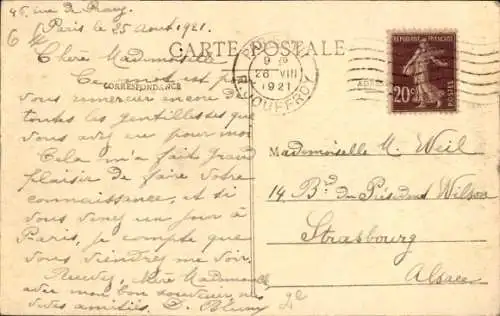 Paris le 25 Août 1921.
CARTE POSTALE
Chère Mademoiselle
Ce mot est
CORRESPONDANCE
vous remercier encore de
toutes les gentillesses que
vous avez eu pour moi
Cela m'a fait grand
plaisir de faire votre
connaissance, et si
vous venez un jour à
Paris, je compte que
vous viendrez me voir.
Recevez, chère Mademoiselle
avec mon bon souvenir
amitiés. D.
R. JOUFFROY
26 VIII
1921
RÉPUBLIQUE FRANÇAISE
POSTES
20c
Mademoiselle M. Weil
14 Bd du Président Wilson
Strasbourg
Alsace